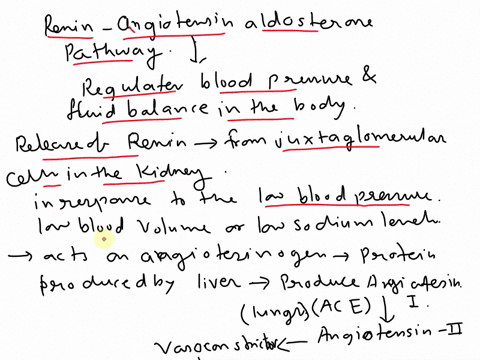 Renin - angiotensin aldosterone
Pathway.
Regulater blood pressure &
fluid balance in the body.
Release of Renin → from juxtaglomerular
cells in the Kidney.
in response to the low blood pressure.
low blood volume or low sodium levels.
→ acts on angiotensinogen → Protein
produced by liver → Produce Angiotensin
(lungs) (ACE) ↓ I.
Vasoconstrictor ← Angiotensin-II